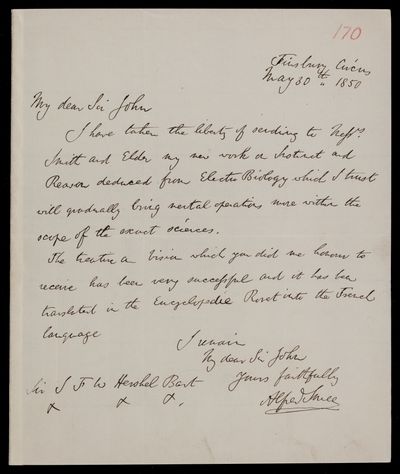 170
Finsbury Circus
May 30th 1850
My dear Sir John
I have taken the liberty of sending to Messrs
Smith and Elder my new work on Instinct and
Reason deduced from Electro Biology which I trust
will gradually bring mental operations more within the
scope of the exact sciences.
The treatise on Vision which you did me honour to
receive has been very successful and it has been
translated in the Encyclopedie Roret into the French
language
I remain
My dear Sir John
Yours faithfully
Alfred Smee
Sir J F W Hershel Bart
x x x